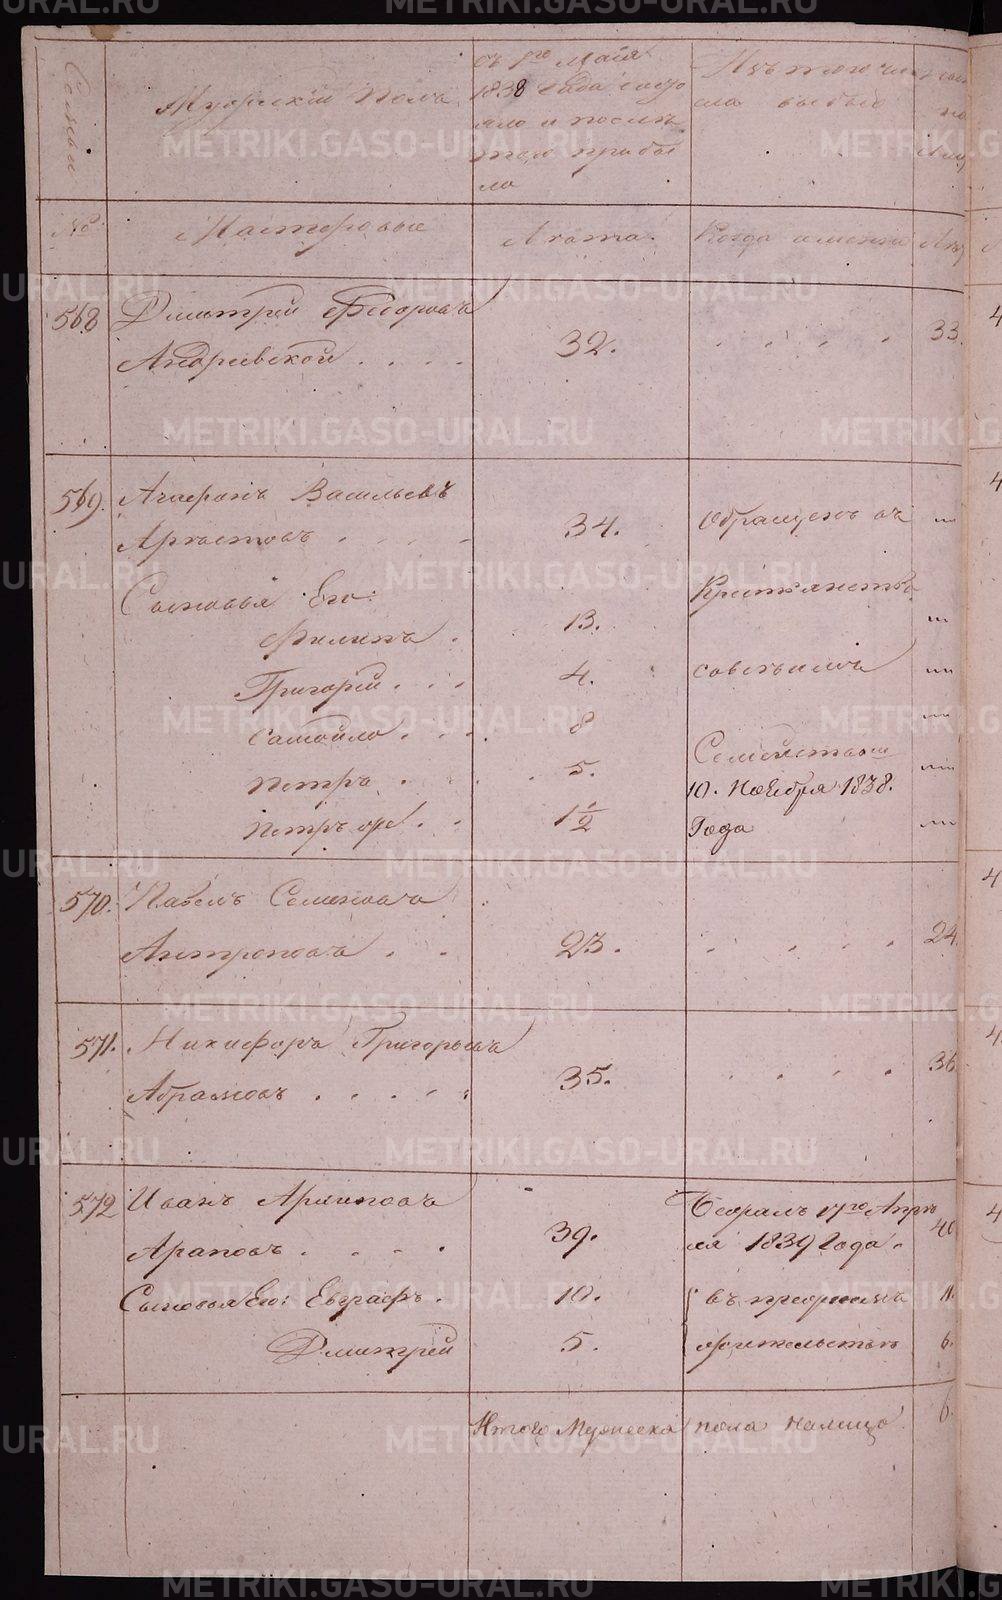 Семьи
Мужский Полъ
съ 1го Майя
1838 года состо
яло и после
того прибы
ло
Изъ того чис
ла выбыло
№
Мастеровые
Лѣта.
Когда именно
568
Дмитрей Федоровъ
Андреевской . . . .
32.
33.
569.
Агафонъ Васильевъ
Арѣстовъ . . . .
34.
Обращенъ въ
Сыновья Его:
Крестьянство
Филипъ .
13.
Григорей . . .
4.
совсѣмъ
Самойло . . .
8
Семействомъ
Петръ . . . .
5.
10. Ноября 1838.
Петръ же . .
1 1/2
Года
570.
Павелъ Семеновъ
Антроповъ . .
23.
24.
571.
Никифоръ Григорьевъ
Абрамовъ . . . . .
35.
36.
572
Иванъ Архиповъ
Араповъ . . . .
39.
Бежалъ 17го Апрѣ
ля 1839 Года.
40
Сыновья Его: Евграфъ .
10.
въ прежнемъ
11.
Дмитрей
5.
жительствѣ
6.
Итого Мужеска пола налицо
6
METRIKI.GASO-URAL.RU